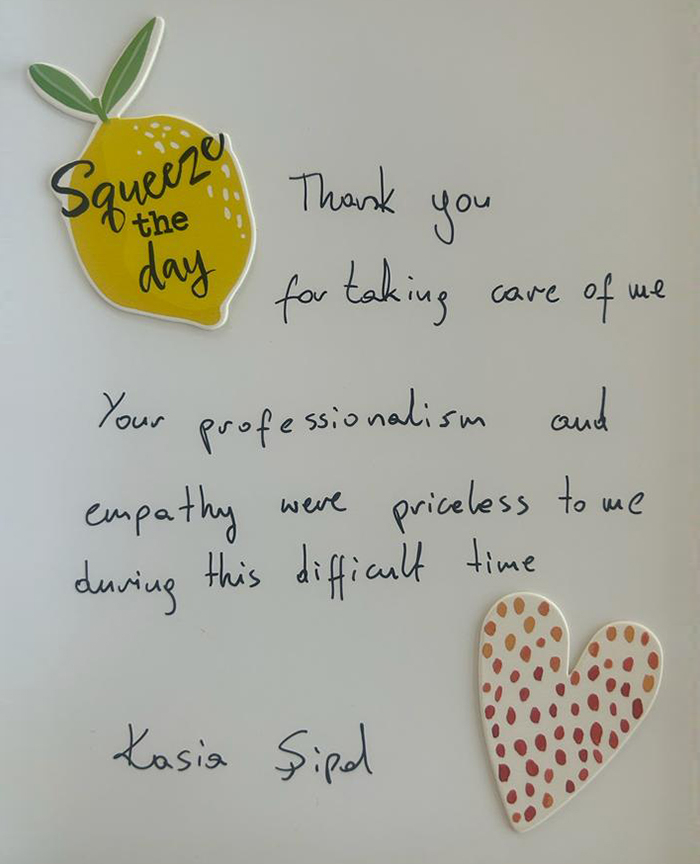 Squeeze
the
day
Thank you
for taking care of me
Your professionalism and
empathy were priceless to me
during this difficult time
Kasia